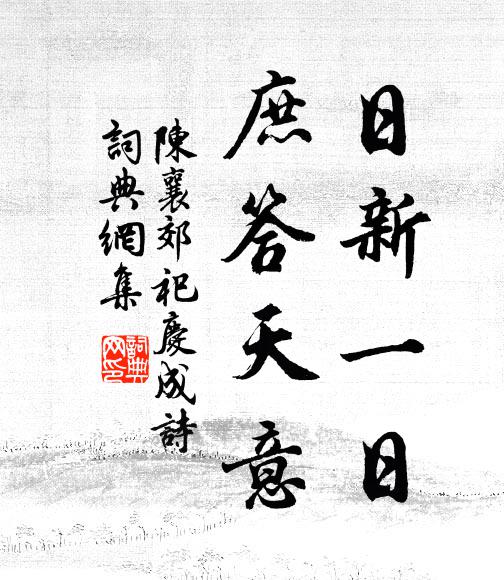 日新一日
庶答天意
陳襄郊祀慶成詩
詞典網集
詞典網印